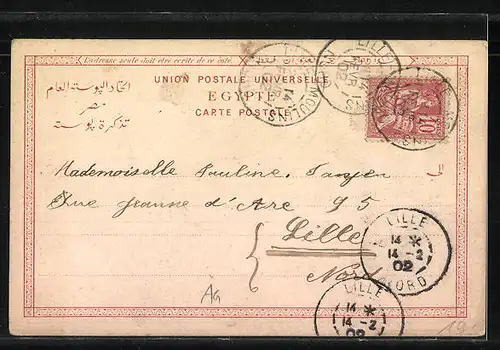 L'adresse seule doit être écrite de ce coté.
UNION POSTALE UNIVERSELLE
EGYPTE
CARTE POSTALE
اتحاد البوستة العام
مصر
تذكرة بوستة
الى
LILLE
10
Mademoiselle Pauline
Rue Jeanne d'Arc 95
Lille
Nord
LILLE
14 *
14 - 2
02
NORD
LILLE
14 *
14 - 2
02